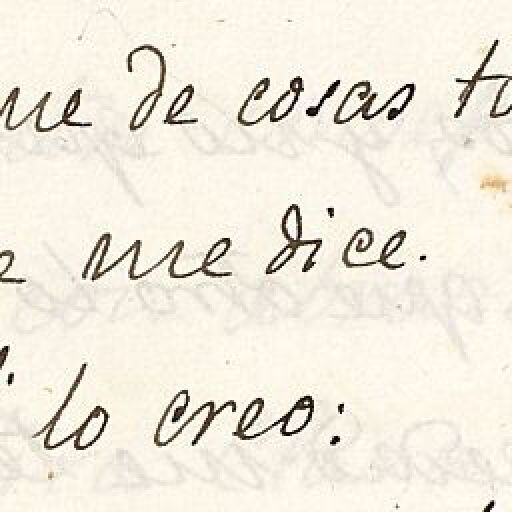 ue de cosas tu
me dice.
lo creo: